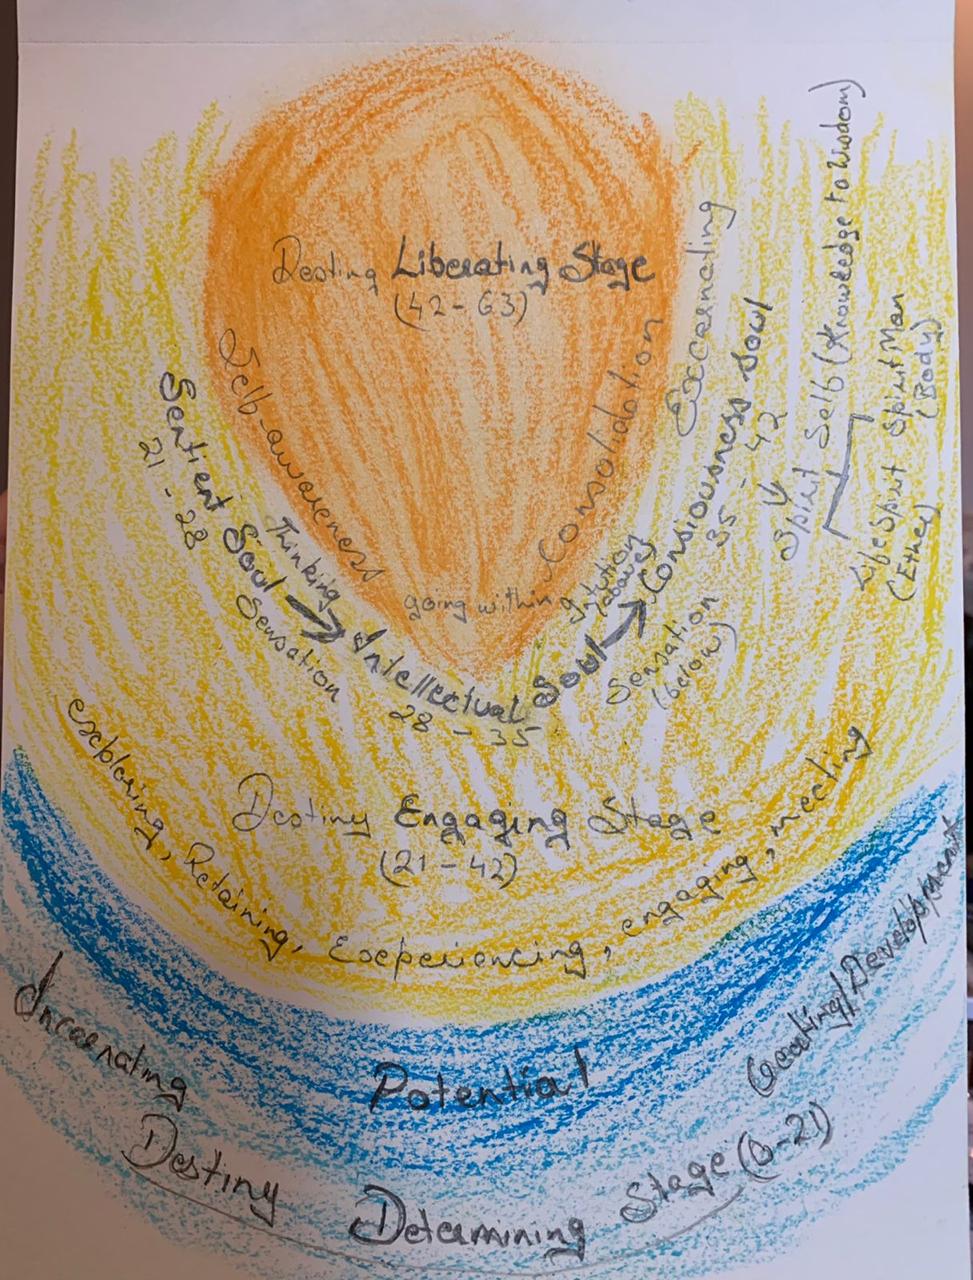 Destiny Liberating Stage
(42-63)
Self-awareness
Consolidation
Excarnating
going within
Sentient Soul → Intellectual Soul → Consiousness Soul
21 - 28
28 - 35
35 - 42
Thinking
Sensation
Intution
(above)
Sensation
(below)
Spirit Self (Knowledge to Wisdom)
Life Spirit
(Ether)
Spirit Man
(Body)
Destiny Engaging Stage
(21-42)
exploring, Retaining, Experiencing, engaging, meeting
Incarnating
Potential
Creating/Development
Destiny Determining Stage (0-21)